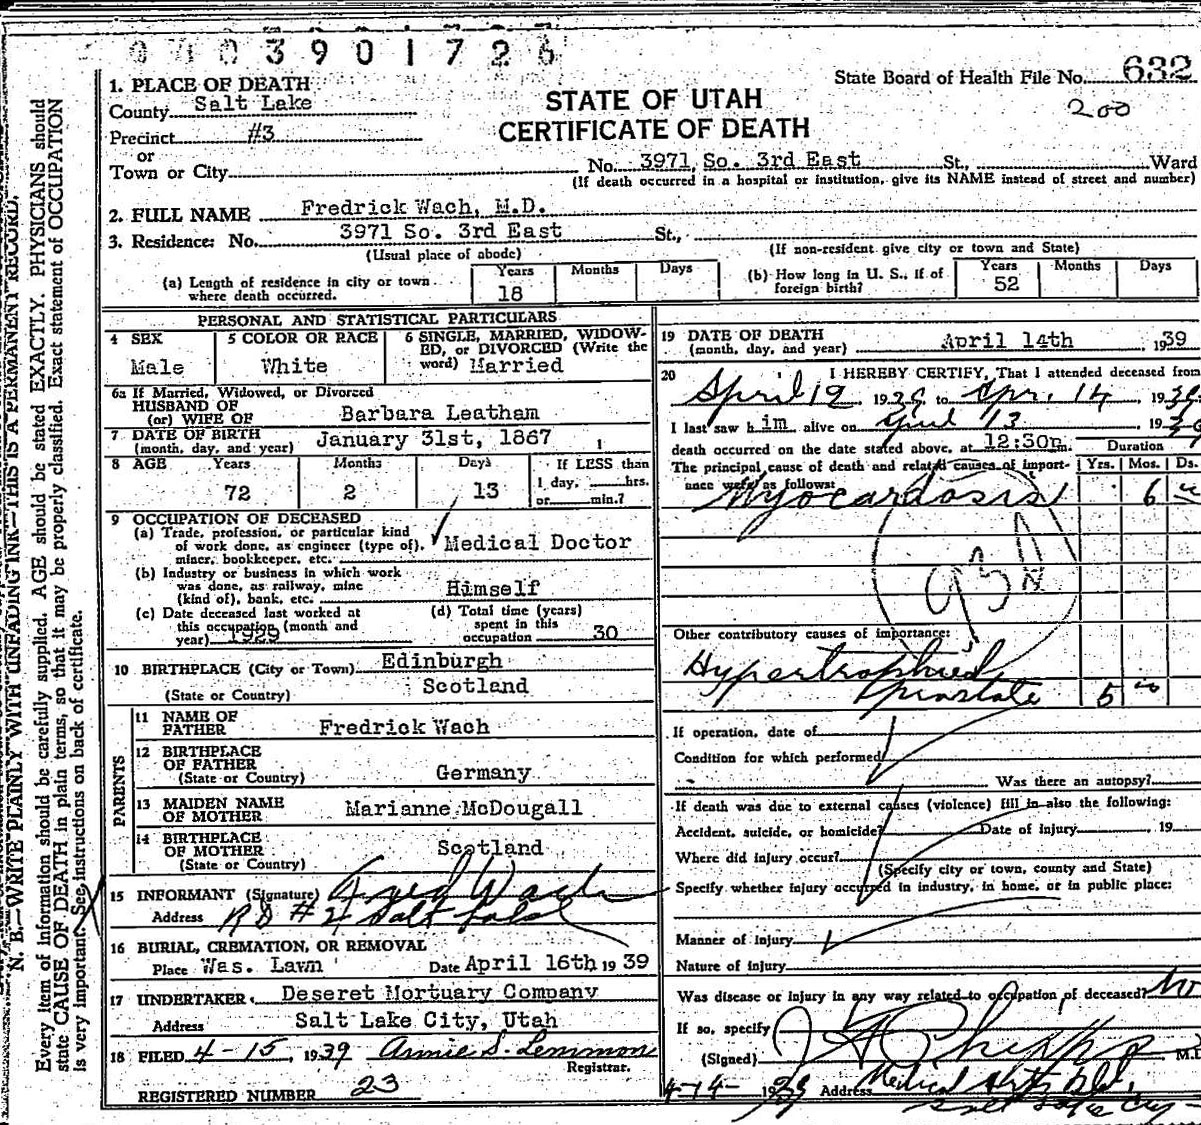 3901726
State Board of Health File No. 632
200
STATE OF UTAH
CERTIFICATE OF DEATH
1. PLACE OF DEATH
County Salt Lake
Precinct #3
or
Town or City No. 3971 So. 3rd East St., Ward
(If death occurred in a hospital or institution, give its NAME instead of street and number)
2. FULL NAME Fredrick Wach, M.D.
3. Residence: No. 3971 So. 3rd East St.,
(Usual place of abode) (If non-resident give city or town and State)
(a) Length of residence in city or town where death occurred. Years 18 Months Days
(b) How long in U. S., if of foreign birth? Years 52 Months Days
PERSONAL AND STATISTICAL PARTICULARS
4 SEX Male
5 COLOR OR RACE White
6 SINGLE, MARRIED, WIDOWED, or DIVORCED (Write the word) Married
6a If Married, Widowed, or Divorced
HUSBAND OF
(or) WIFE OF Barbara Leatham
7 DATE OF BIRTH
(month, day, and year) January 31st, 1867
8 AGE Years 72 Months 2 Days 13 If LESS than 1 day, hrs. or min.?
9 OCCUPATION OF DECEASED
(a) Trade, profession, or particular kind
of work done, as engineer (type of),
miner, bookkeeper, etc. Medical Doctor
(b) Industry or business in which work
was done, as railway, mine
(kind of), bank, etc. Himself
(c) Date deceased last worked at
this occupation (month and
year) 1929
(d) Total time (years)
spent in this
occupation 30
10 BIRTHPLACE (City or Town) Edinburgh
(State or Country) Scotland
PARENTS
11 NAME OF
FATHER Fredrick Wach
12 BIRTHPLACE
OF FATHER
(State or Country) Germany
13 MAIDEN NAME
OF MOTHER Marianne McDougall
14 BIRTHPLACE
OF MOTHER
(State or Country) Scotland
15 INFORMANT (Signature) Fred Wach
Address RD #4 Salt Lake
16 BURIAL, CREMATION, OR REMOVAL
Place Was. Lawn Date April 16th 1939
17 UNDERTAKER Deseret Mortuary Company
Address Salt Lake City, Utah
18 FILED 4-15, 1939 Annie S. Lemmon
Registrar.
REGISTERED NUMBER 23
19 DATE OF DEATH
(month, day, and year) April 14th 1939
20 I HEREBY CERTIFY, That I attended deceased from
April 12 1939, to Apr. 14, 1939
I last saw him alive on April 13 193
death occurred on the date stated above, at 12:30 m. Duration
The principal cause of death and related causes of importance were as follows: Yrs. Mos. Ds.
Myocardosis 6
93A
Other contributory causes of importance:
Hypertrophied
prostate 5
If operation, date of
Condition for which performed
Was there an autopsy?
If death was due to external causes (violence) fill in also the following:
Accident, suicide, or homicide? Date of Injury , 19
Where did injury occur?
(Specify city or town, county and State)
Specify whether injury occurred in industry, in home, or in public place:
Manner of Injury
Nature of injury
Was disease or injury in any way related to occupation of deceased? No
If so, specify
(Signed) Phipps M.D.
4-14- 1939 Address Medical Arts Bld.
Salt Lake City
N. B.—WRITE PLAINLY WITH UNFADING INK—THIS IS A PERMANENT RECORD.
Every item of information should be carefully supplied. AGE should be stated EXACTLY. PHYSICIANS should
state CAUSE OF DEATH in plain terms, so that it may be properly classified. Exact statement of OCCUPATION
is very important. See instructions on back of certificate.